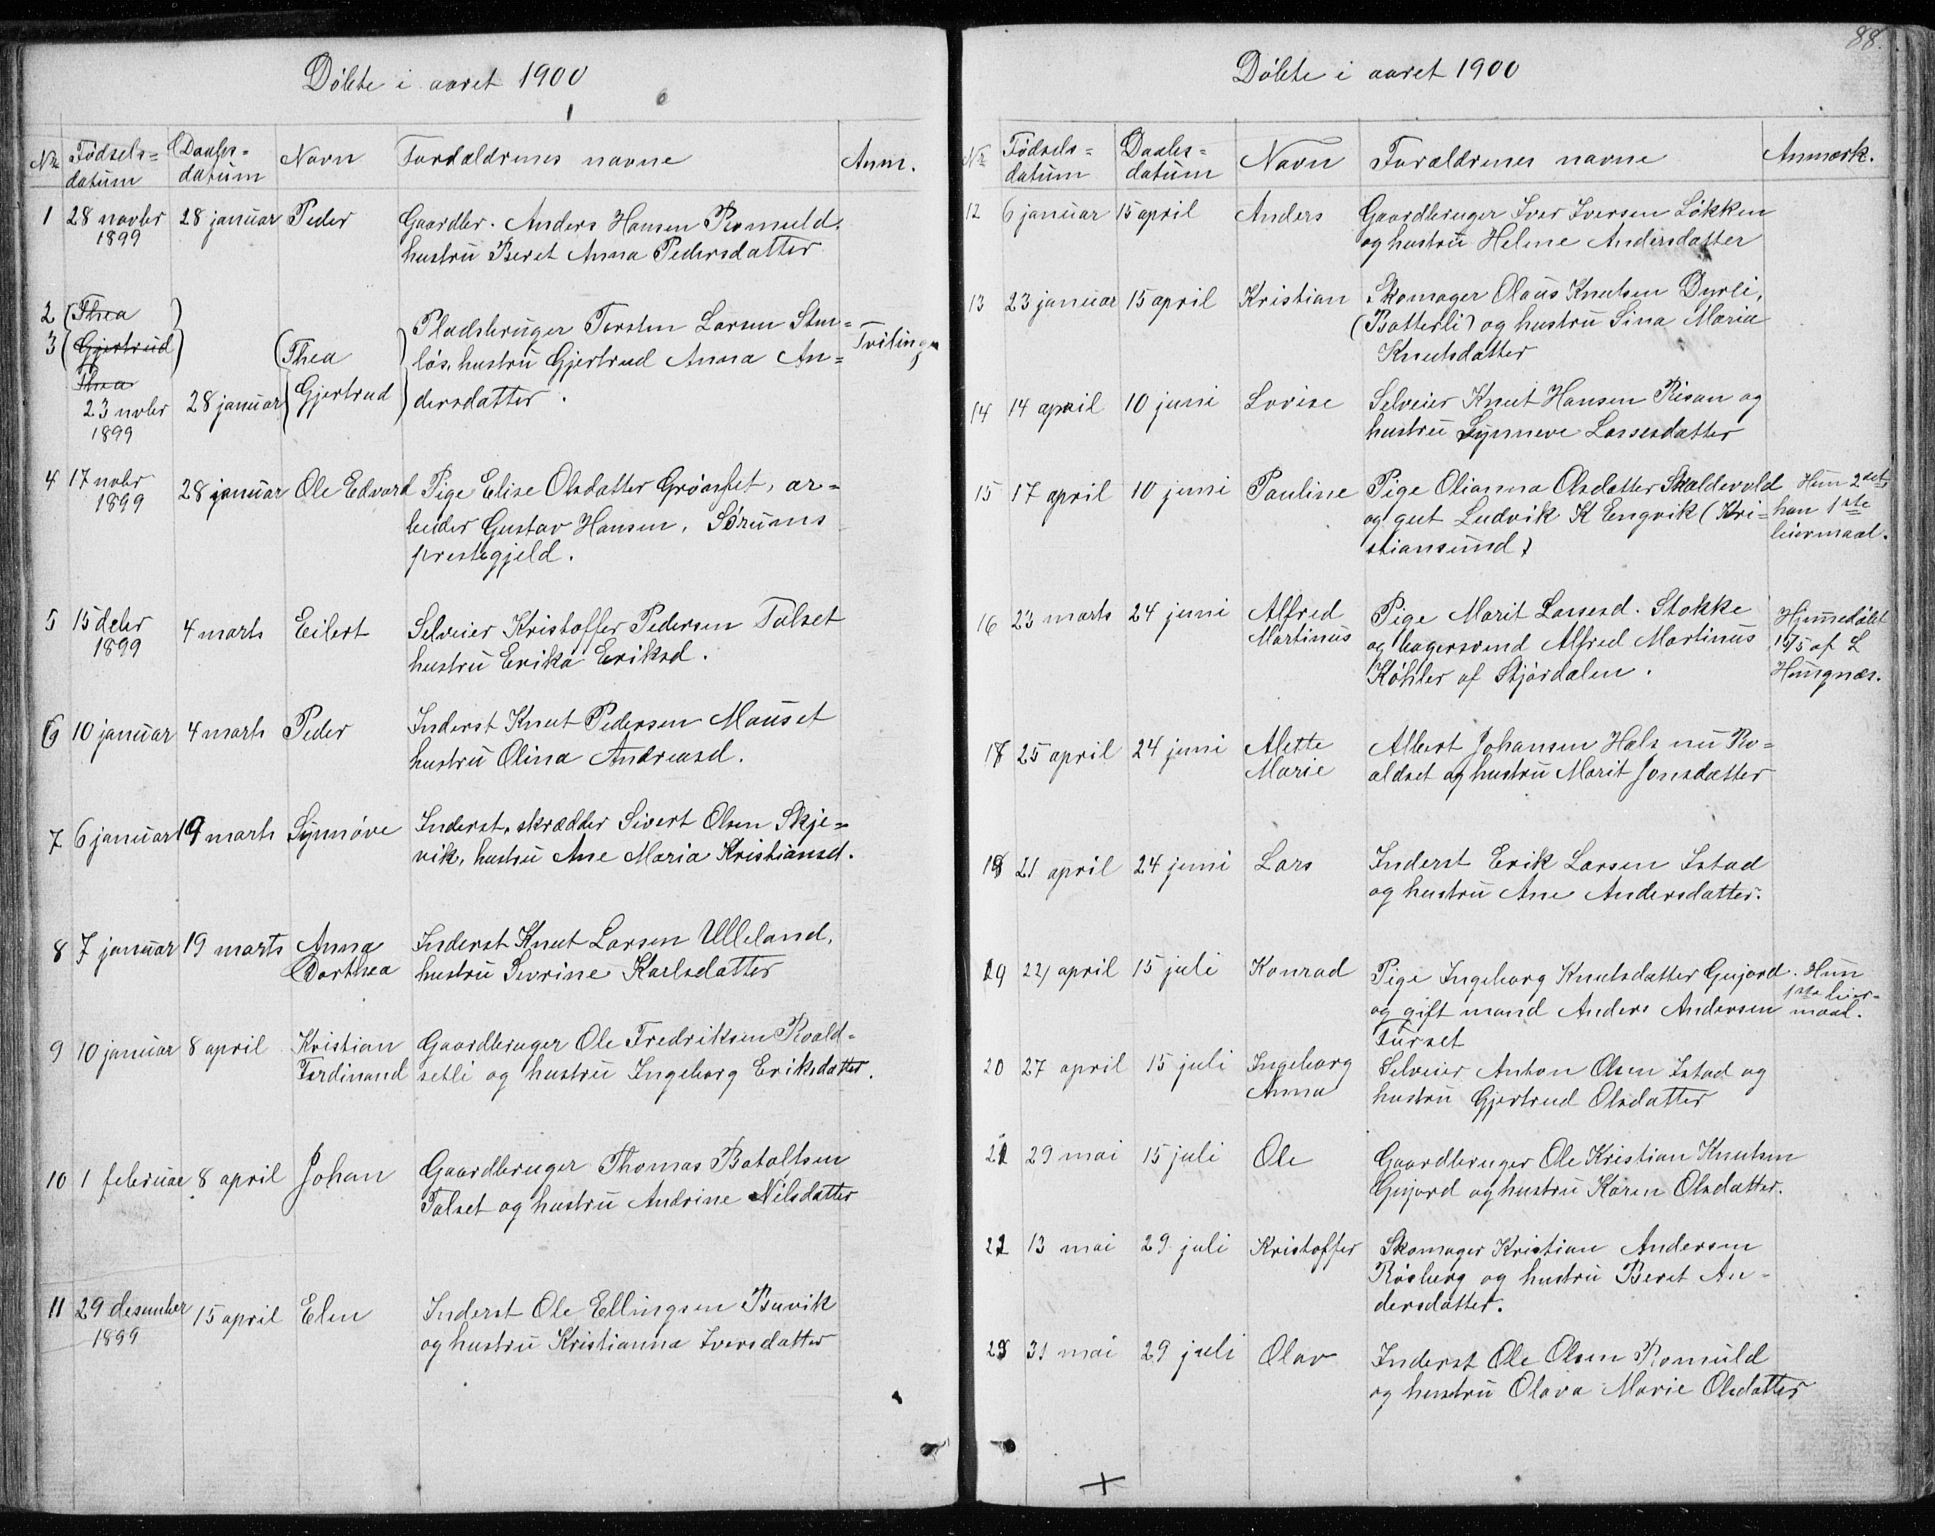 Døbte i aaret 1900
Nr Fødsels= datum Daabs= datum Navn Forældrenes navne Anm.
1 28 novbr 28 januar Peder Gaardbr. Anders Hansen Romuld,
1899 hustru Beret Anna Pedersdatter
2 (Thea)
3 (Gjertrud) (Thea Pladsbruger Torsten Larsen Stur=
Thea Gjertrud) løs, hustru Gjertrud Anna An= Tvilinger
23 novbr 28 januar dersdatter.
1899
4 17 novbr 28 januar Ole Edvard Pige Elise Olsdatter Grønset, ar=
1899 beider Gustav Hansen, Sørums
prestegjeld.
5 15 debr 4 marts Eilert Selveier Kristoffer Pedersen Talset
1899 hustru Erika Eriksd.
6 10 januar 4 marts Peder Inderst Knut Pedersen Mauset
hustru Olina Andreasd.
7 6 januar 19 marts Synnøve Inderst, skrædder Sivert Olsen Skje=
vik, hustru Ane Maria Kristiansd.
8 7 januar 19 marts Anna Inderst Knut Larsen Ulleland,
Dorthea hustru Sevrine Karlsdatter
9 10 januar 8 april Kristian Gaardbruger Ole Fredriksen Roald=
Ferdinand setli og hustru Ingeborg Eriksdatter.
10 1 februar 8 april Johan Gaardbruger Thomas Bataltsen
Talset og hustru Andrine Nilsdatter
11 29 desember 15 april Elen Inderst Ole Ellingsen Buvik
1899 og hustru Kristianna Iversdatter
88.
Døbte i aaret 1900
Nr Fødsels= datum Daabs= datum Navn Forældrenes navne Anmærk.
12 6 januar 15 april Anders Gaardbruger Iver Iversen Løkken
og hustru Helene Andersdatter
13 23 januar 15 april Kristian Skomager Olaus Knutsen Dyrli,
(Batterli) og hustru Sina Maria
Knutsdatter
14 14 april 10 juni Lovise Selveier Knut Hansen Risan og
hustru Synneve Larsesdatter
15 17 april 10 juni Pauline Pige Olianna Olsdatter Skaldevold Hun 2det
og gut Ludvik K Engvik (Kri= han 1ste
stiansund) leiermaal.
16 23 marts 24 juni Alfred Pige Marit Larsesd. Stokke Hjemmedøbt
Martinus og bagersvend Alfred Martinus 15/5 af L
Köhler af Stjørdalen. Haugnæs.
17 25 april 24 juni Alette Albert Johansen Hals nu Ro=
Marie aldset og hustru Marit Jonsdatter
18 21 april 24 juni Lars Inderst Erik Larsen Istad
og hustru Ane Andersdatter.
19 24 april 15 juli Konrad Pige Ingeborg Knutsdatter Gujord. Hun
og gift mand Anders Andersen 1ste leier=
Furset maal.
20 27 april 15 juli Ingeborg Selveier Anton Olsen Istad og
Anna hustru Gjertrud Olsdatter
21 29 mai 15 juli Ole Gaardbruger Ole Kristian Knutsen
Gujord og hustru Karen Olsdatter.
22 13 mai 29 juli Kristoffer Skomager Kristian Andersen
Røsberg og hustru Beret An=
dersdatter.
23 31 mai 29 juli Olav Inderst Ole Olsen Romuld
og hustru Olava Marie Olsdatter